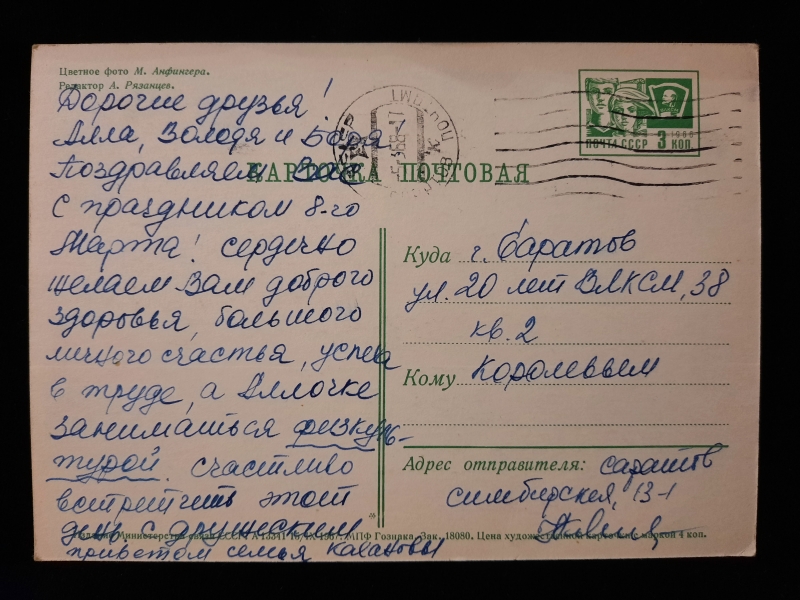 Цветное фото М. Анфингера.
Редактор А. Рязанцев.
Дорогие друзья!
Алла, Володя и Боря
Поздравляем Вас
с праздником 8-го
Марта! сердечно
желаем Вам доброго
здоровья, большого
личного счастья, успеха
в труде, а Аллочке
заниматься физкуль-
турой. счастливо
встретить этот
день. с дружеским
приветом семья
КАРТОЧКА ПОЧТОВАЯ
ПОЧТА СССР 3 КОП.
1966
Куда г. Саратов
ул. 20 лет ВЛКСМ, 38
кв. 2
Кому Королевым
Адрес отправителя: Саратов
симбирская, 13-1
Министерство связи СССР. А 13341 1967. МПФ Гознака. Зак. 18080. Цена художественной карточки с маркой 4 коп.